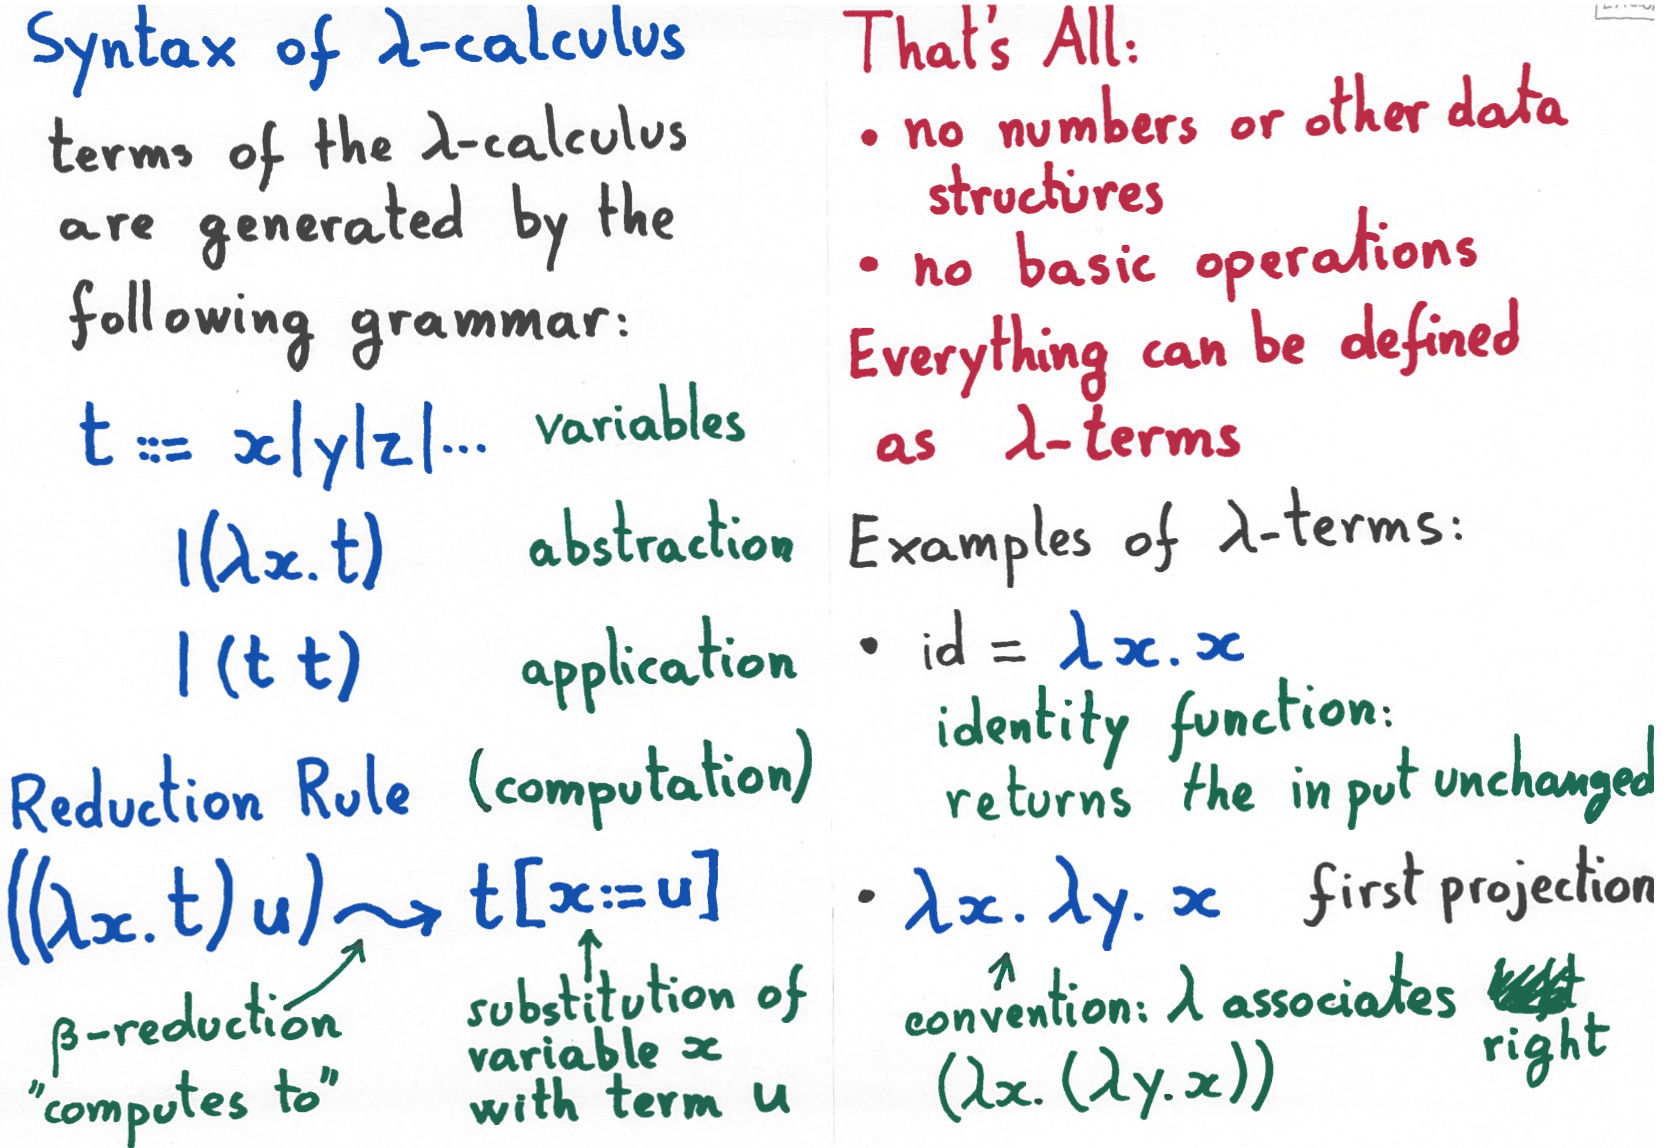 Syntax of λ-calculus
terms of the λ-calculus
are generated by the
following grammar:
t ::= x|y|z|... variables
|(λx. t) abstraction
| (t t) application
Reduction Rule (computation)
((λx. t) u) ⤳ t[x:=u]
β-reduction
"computes to"
substitution of
variable x
with term u
That's All:
• no numbers or other data
structures
• no basic operations
Everything can be defined
as λ-terms
Examples of λ-terms:
• id = λx. x
identity function:
returns the input unchanged
• λx. λy. x first projection
convention: λ associates
right
(λx. (λy. x))